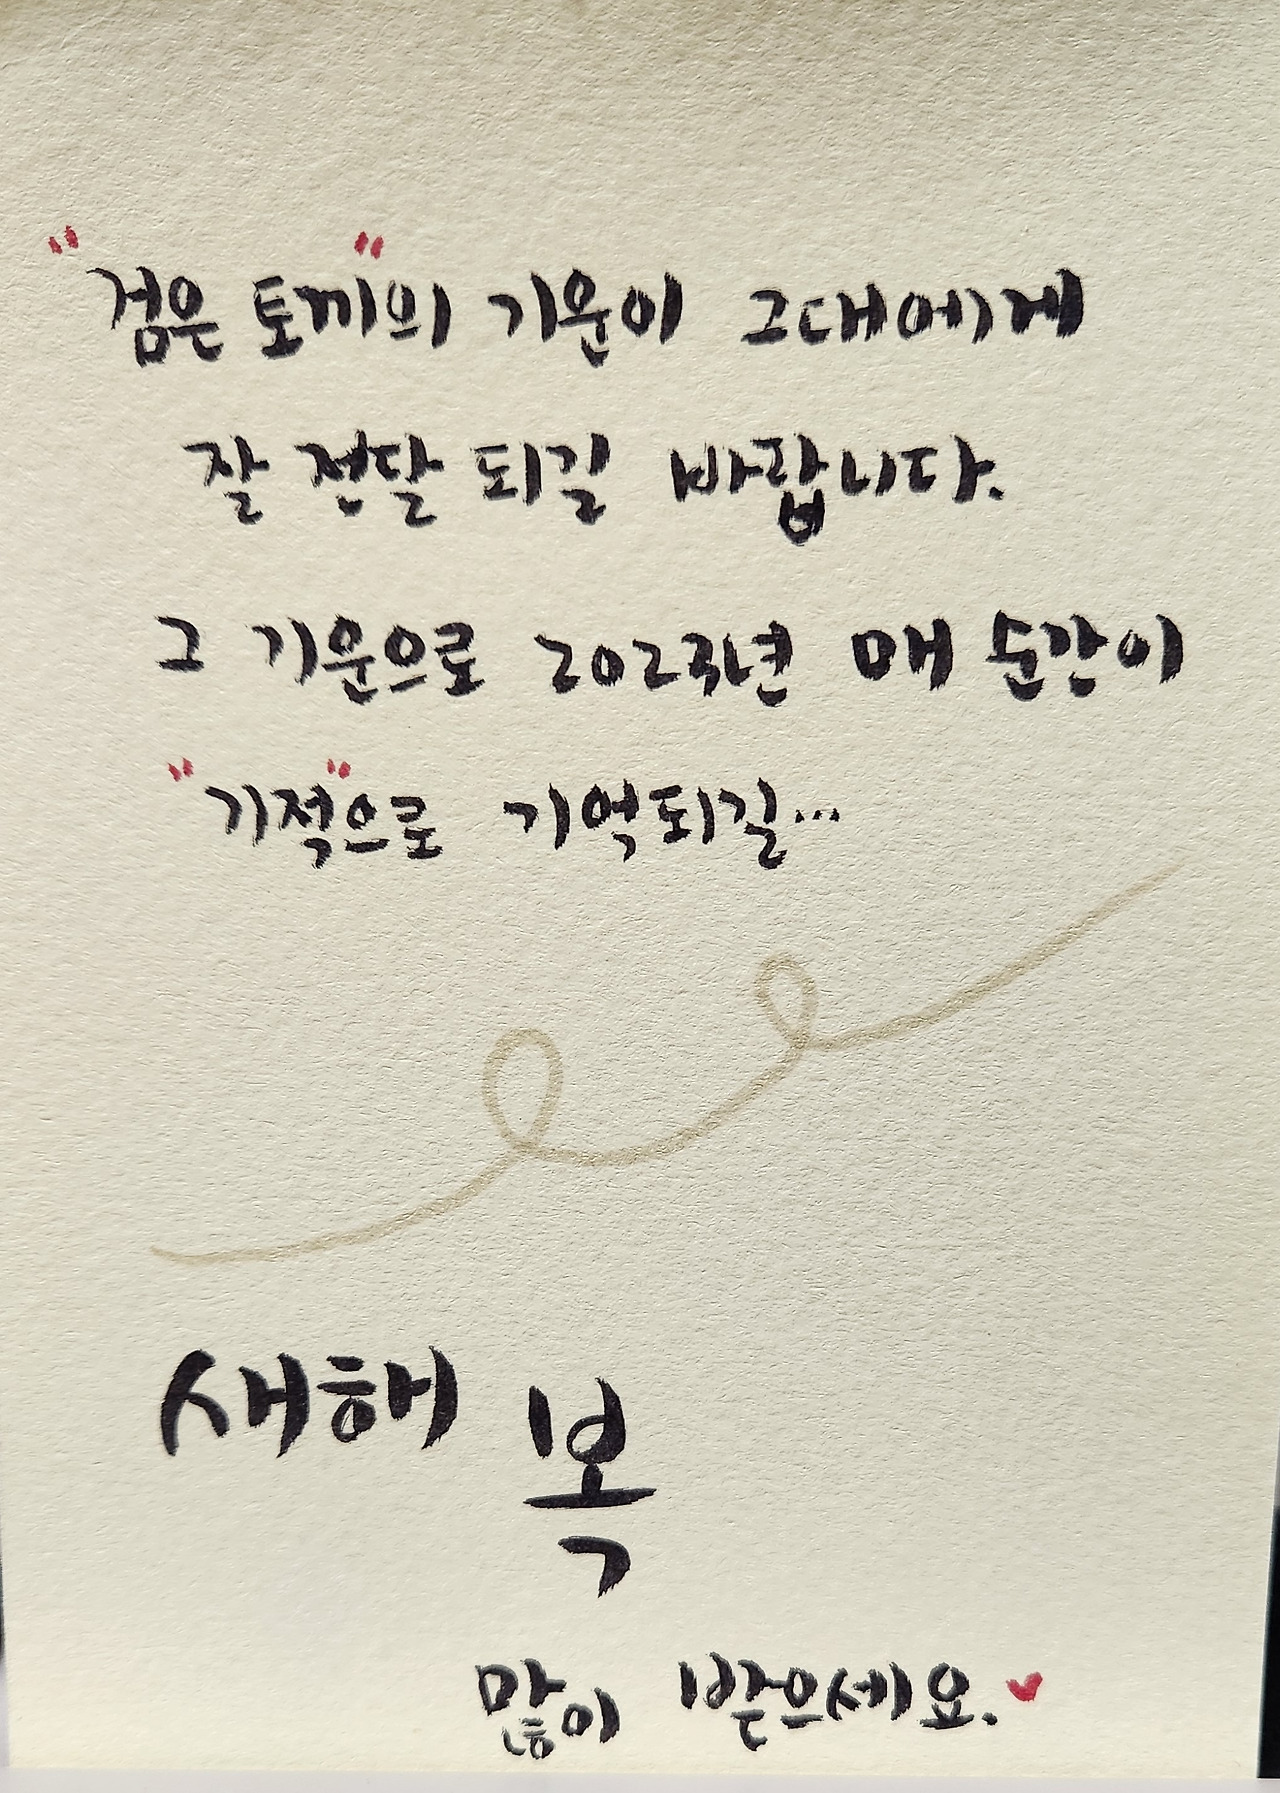 "검은 토끼"의 기운이 그대에게
잘 전달 되길 바랍니다.
그 기운으로 2023년 매 순간이
"기적"으로 기억되길...
새해 복
많이 받으세요.♥